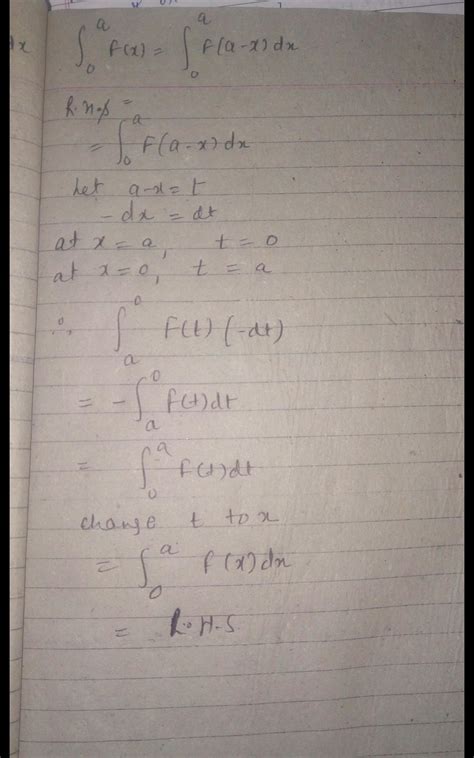 ∫₀ᵃ F(x) = ∫₀ᵃ F(a-x) dx
R.H.S =
= ∫₀ᵃ F(a-x) dx
Let a-x = t
-dx = dt
at x = a, t = 0
at x = 0, t = a
∴ ∫ₐ⁰ F(t) (-dt)
= -∫ₐ⁰ F(t) dt
= ∫₀ᵃ F(t) dt
change t to x
= ∫₀ᵃ F(x) dx
= L.H.S